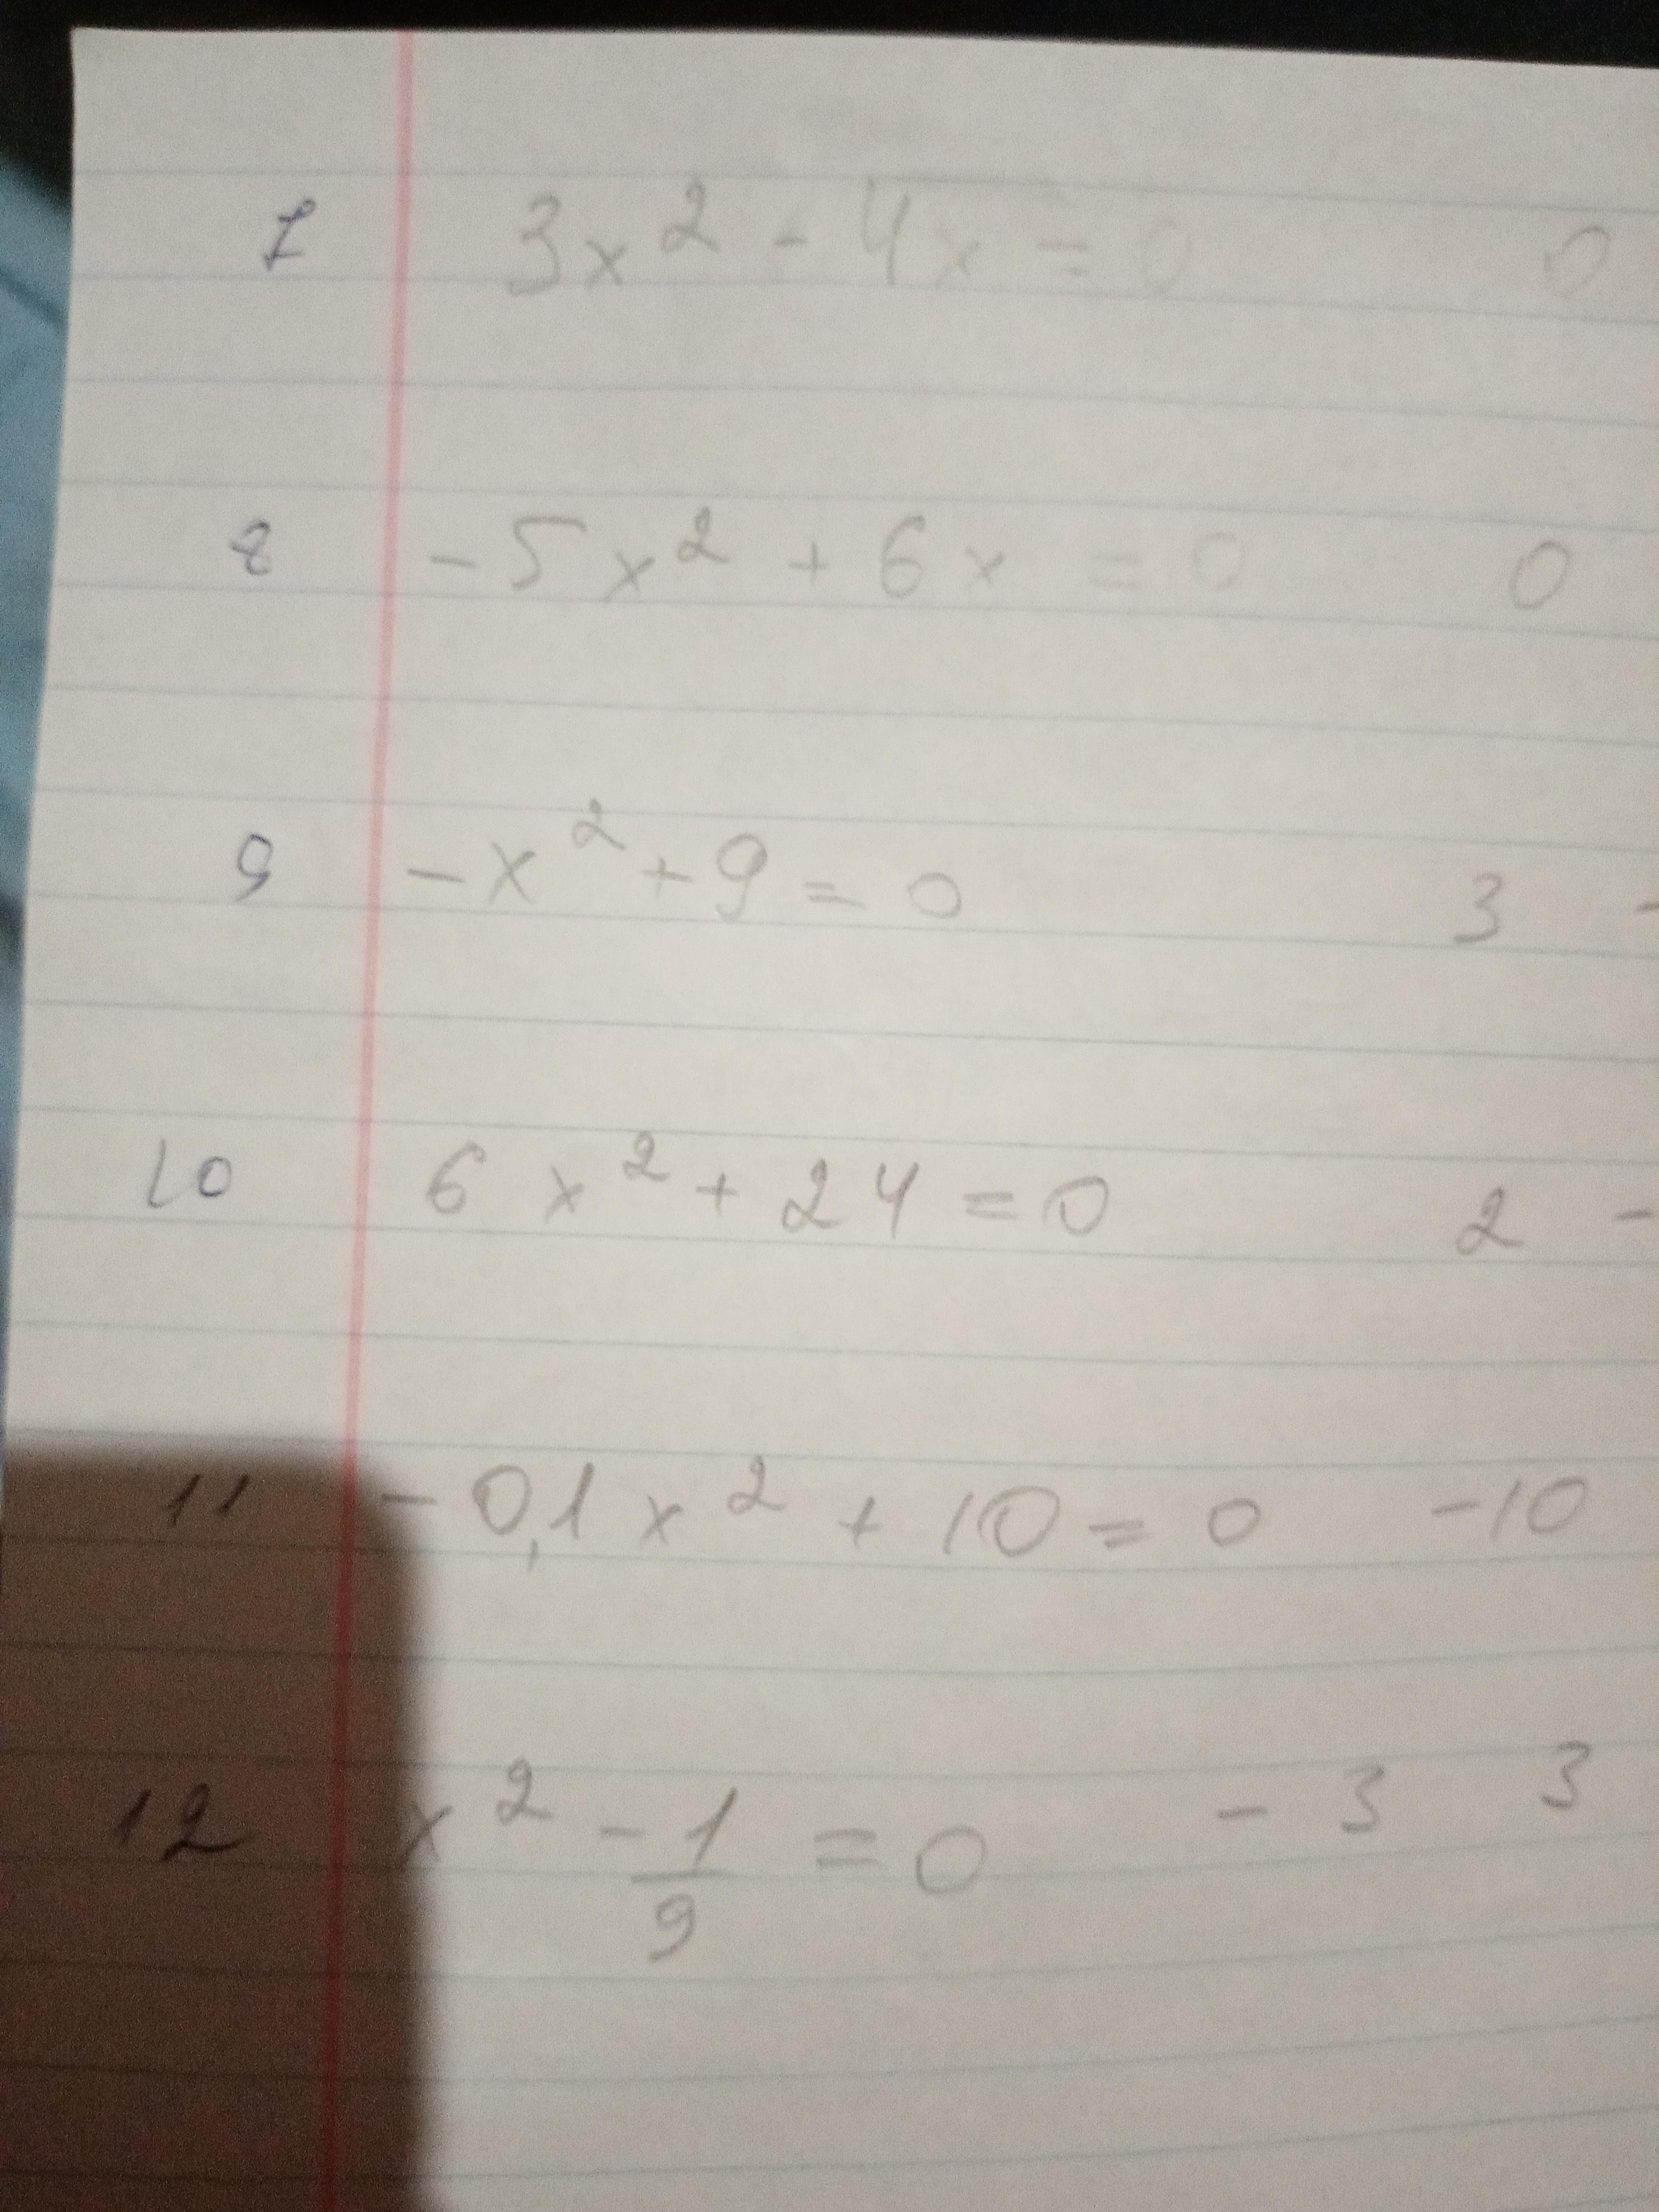 7 3x² - 4x = 0 0
8 - 5x² + 6x = 0 0
9 - x² + 9 = 0 3 -
10 6x² + 24 = 0 2 -
11 - 0,1x² + 10 = 0 -10
12 x² - 1/9 = 0 - 3 3